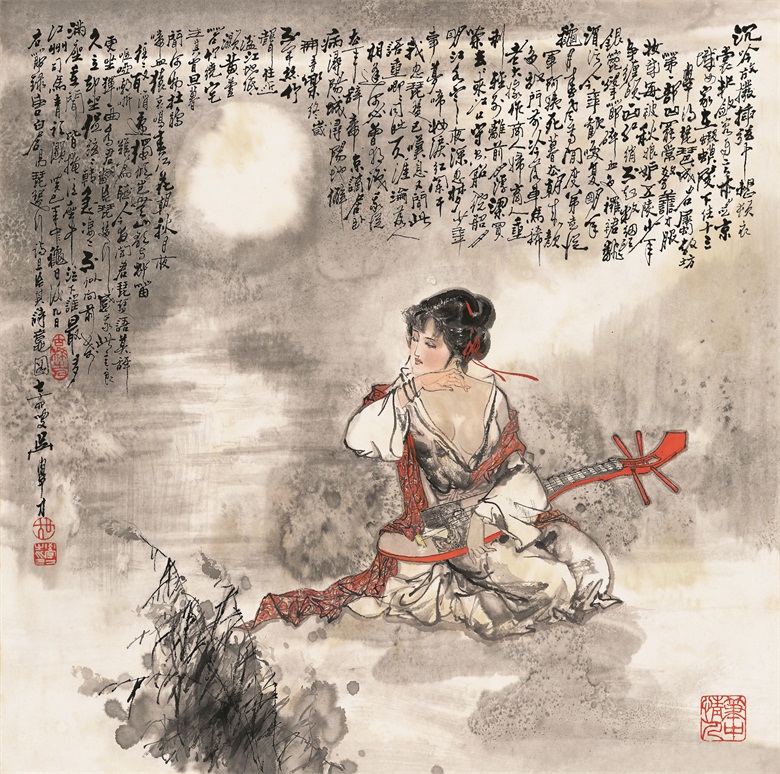 沉吟放撥插弦中整頓衣
裳起斂容自言本是京
城女家在蝦蟆陵下住十三
學得琵琶成名屬教坊
第一部曲罷曾教善才服
妝成每被秋娘妒五陵少年
爭纏頭一曲紅綃不知數鈿頭
銀篦擊節碎血色羅裙翻
酒污今年歡笑復明年
秋月春風等閒度弟走從
軍阿姨死暮去朝來顏
色故門前冷落車馬稀
老大嫁作商人婦商人重
利輕別離前月浮梁買
茶去去來江口守空船繞船
明月江水寒夜深忽夢少年
事夢啼妝淚紅闌干
我聞琵琶已嘆息又聞此
語重唧唧同是天涯淪落人
相逢何必曾相識我從
去年辭帝京謫居臥
病潯陽城潯陽地僻
無音樂終歲
不聞絲竹
聲住近
湓江地低
濕黃蘆
苦竹繞宅
生其間旦暮
聞何物杜鵑
啼血猿哀鳴春江花朝秋月夜
往往取酒還獨傾豈無山歌與村笛
嘔啞嘲哳難為聽今夜聞君琵琶語莫辭
更坐彈一曲為君翻作琵琶行感我此言良
久立却坐促弦弦轉急淒淒不似向前聲
滿座重聞皆掩泣座中泣下誰最多
江州司馬青衫濕癸巳年中秋
右節錄唐白居易琵琶行詩